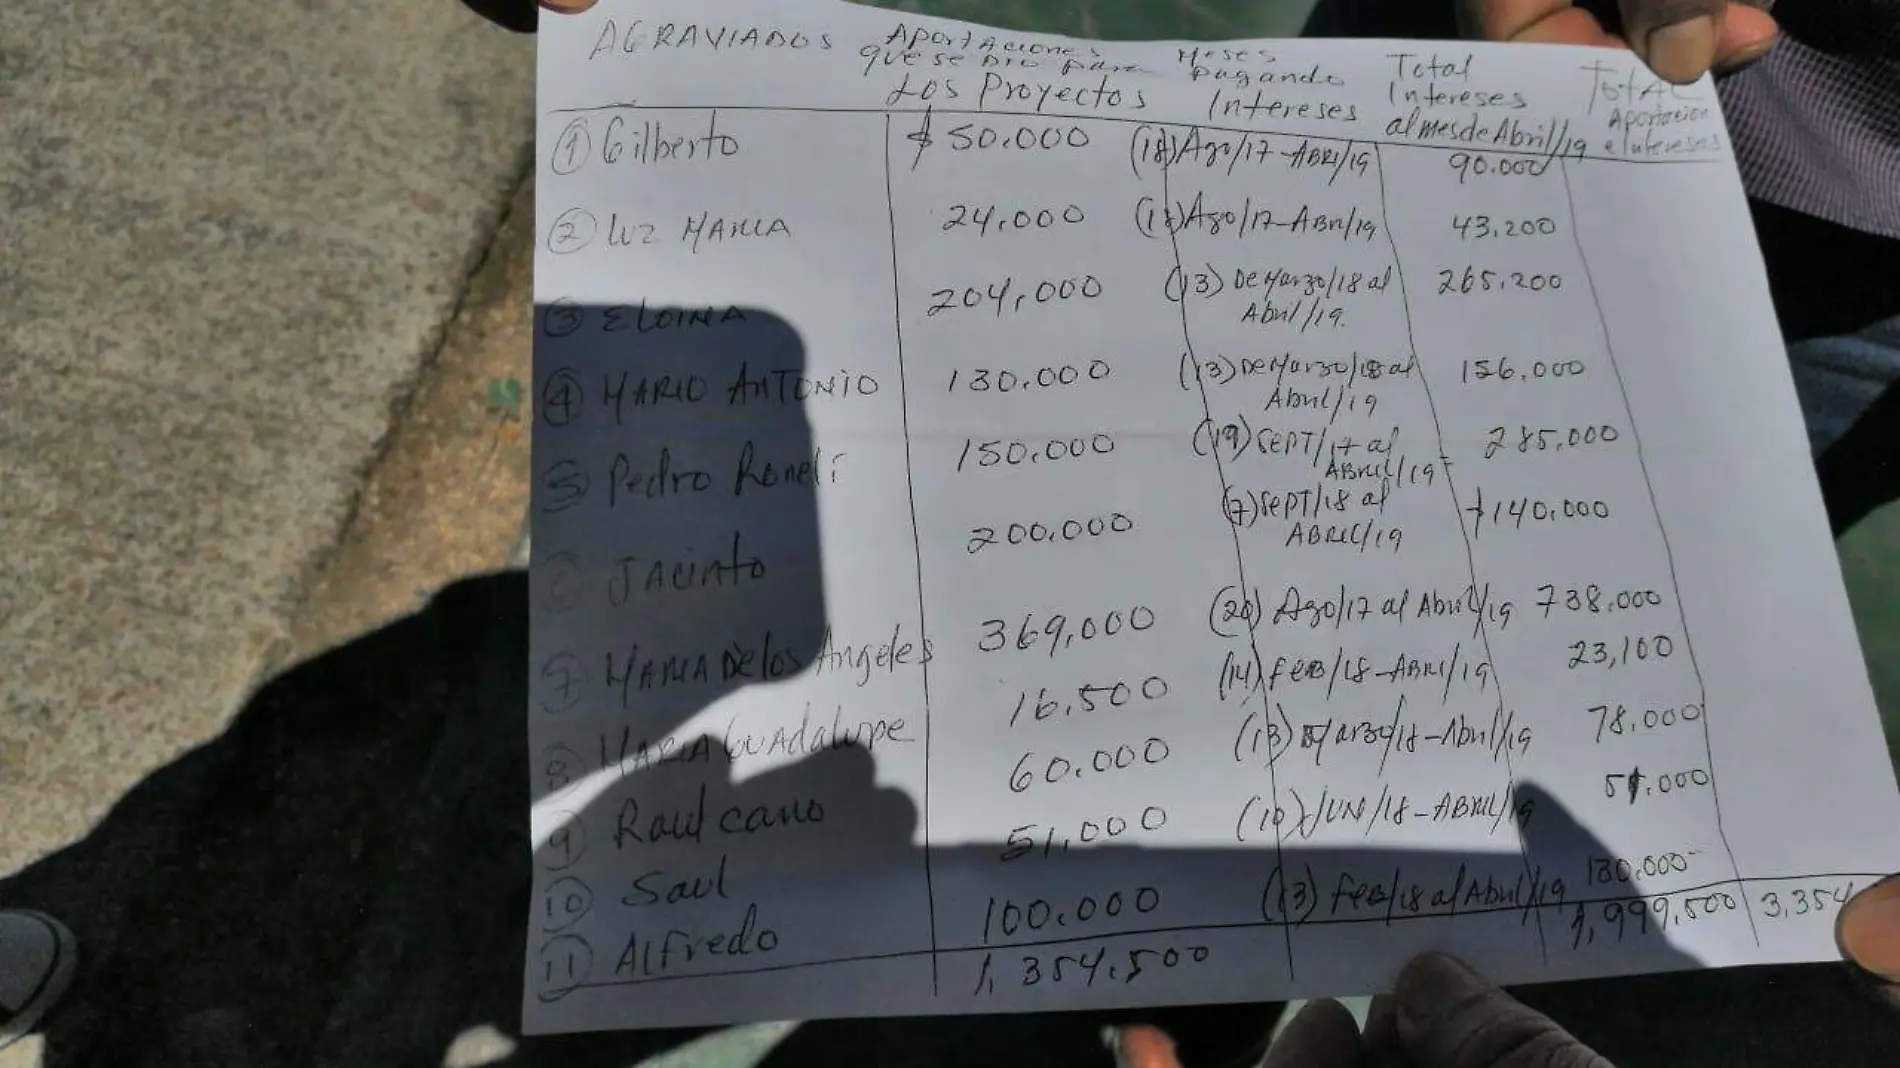 AGRAVIADOS Aportaciones Meses Total Total
que se Dio para pagando Intereses Aportacion
Los Proyectos Intereses al mes de Abril/19 e Intereses
① Gilberto $ 50.000 (18) Ago/17-ABRI/19 90.000
② LUZ MARIA 24,000 (18) Ago/17-ABRI/19 43,200
③ ELOINA 204,000 (13) De Marzo/18 al 265,200
Abril/19.
④ MARIO ANTONIO 130.000 (13) De Marzo/18 al 156,000
Abril/19
⑤ Pedro Roneli 150.000 (19) SEPT/17 al 285.000
ABRIL/19
⑥ JAcinto 200.000 (7) SEPT/18 al $140,000
ABRIL/19
⑦ MARIA De los Angeles 369,000 (20) Ago/17 al Abril/19 738.000
⑧ MARIA GUADALUPE 16,500 (14) FEB/18-ABRI/19 23,100
⑨ Raul cano 60.000 (13) Marzo/18-Abril/19 78,000
⑩ Saul 51,000 (10) JUN/18-ABRIL/19 51.000
⑪ Alfredo 100.000 (13) FEB/18 al Abril/19 130,000
1,354,500 1,999,500 3,354